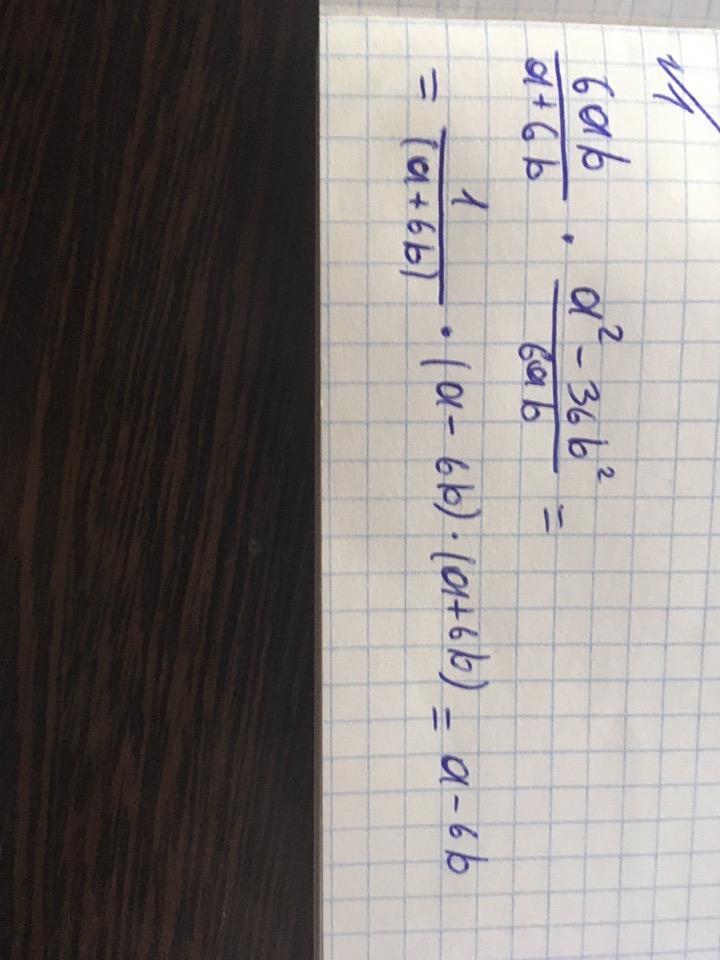 √1
6ab / a+6b · a² - 36b² / 6ab =
= 1 / (a+6b) · (a - 6b) · (a+6b) = a - 6b